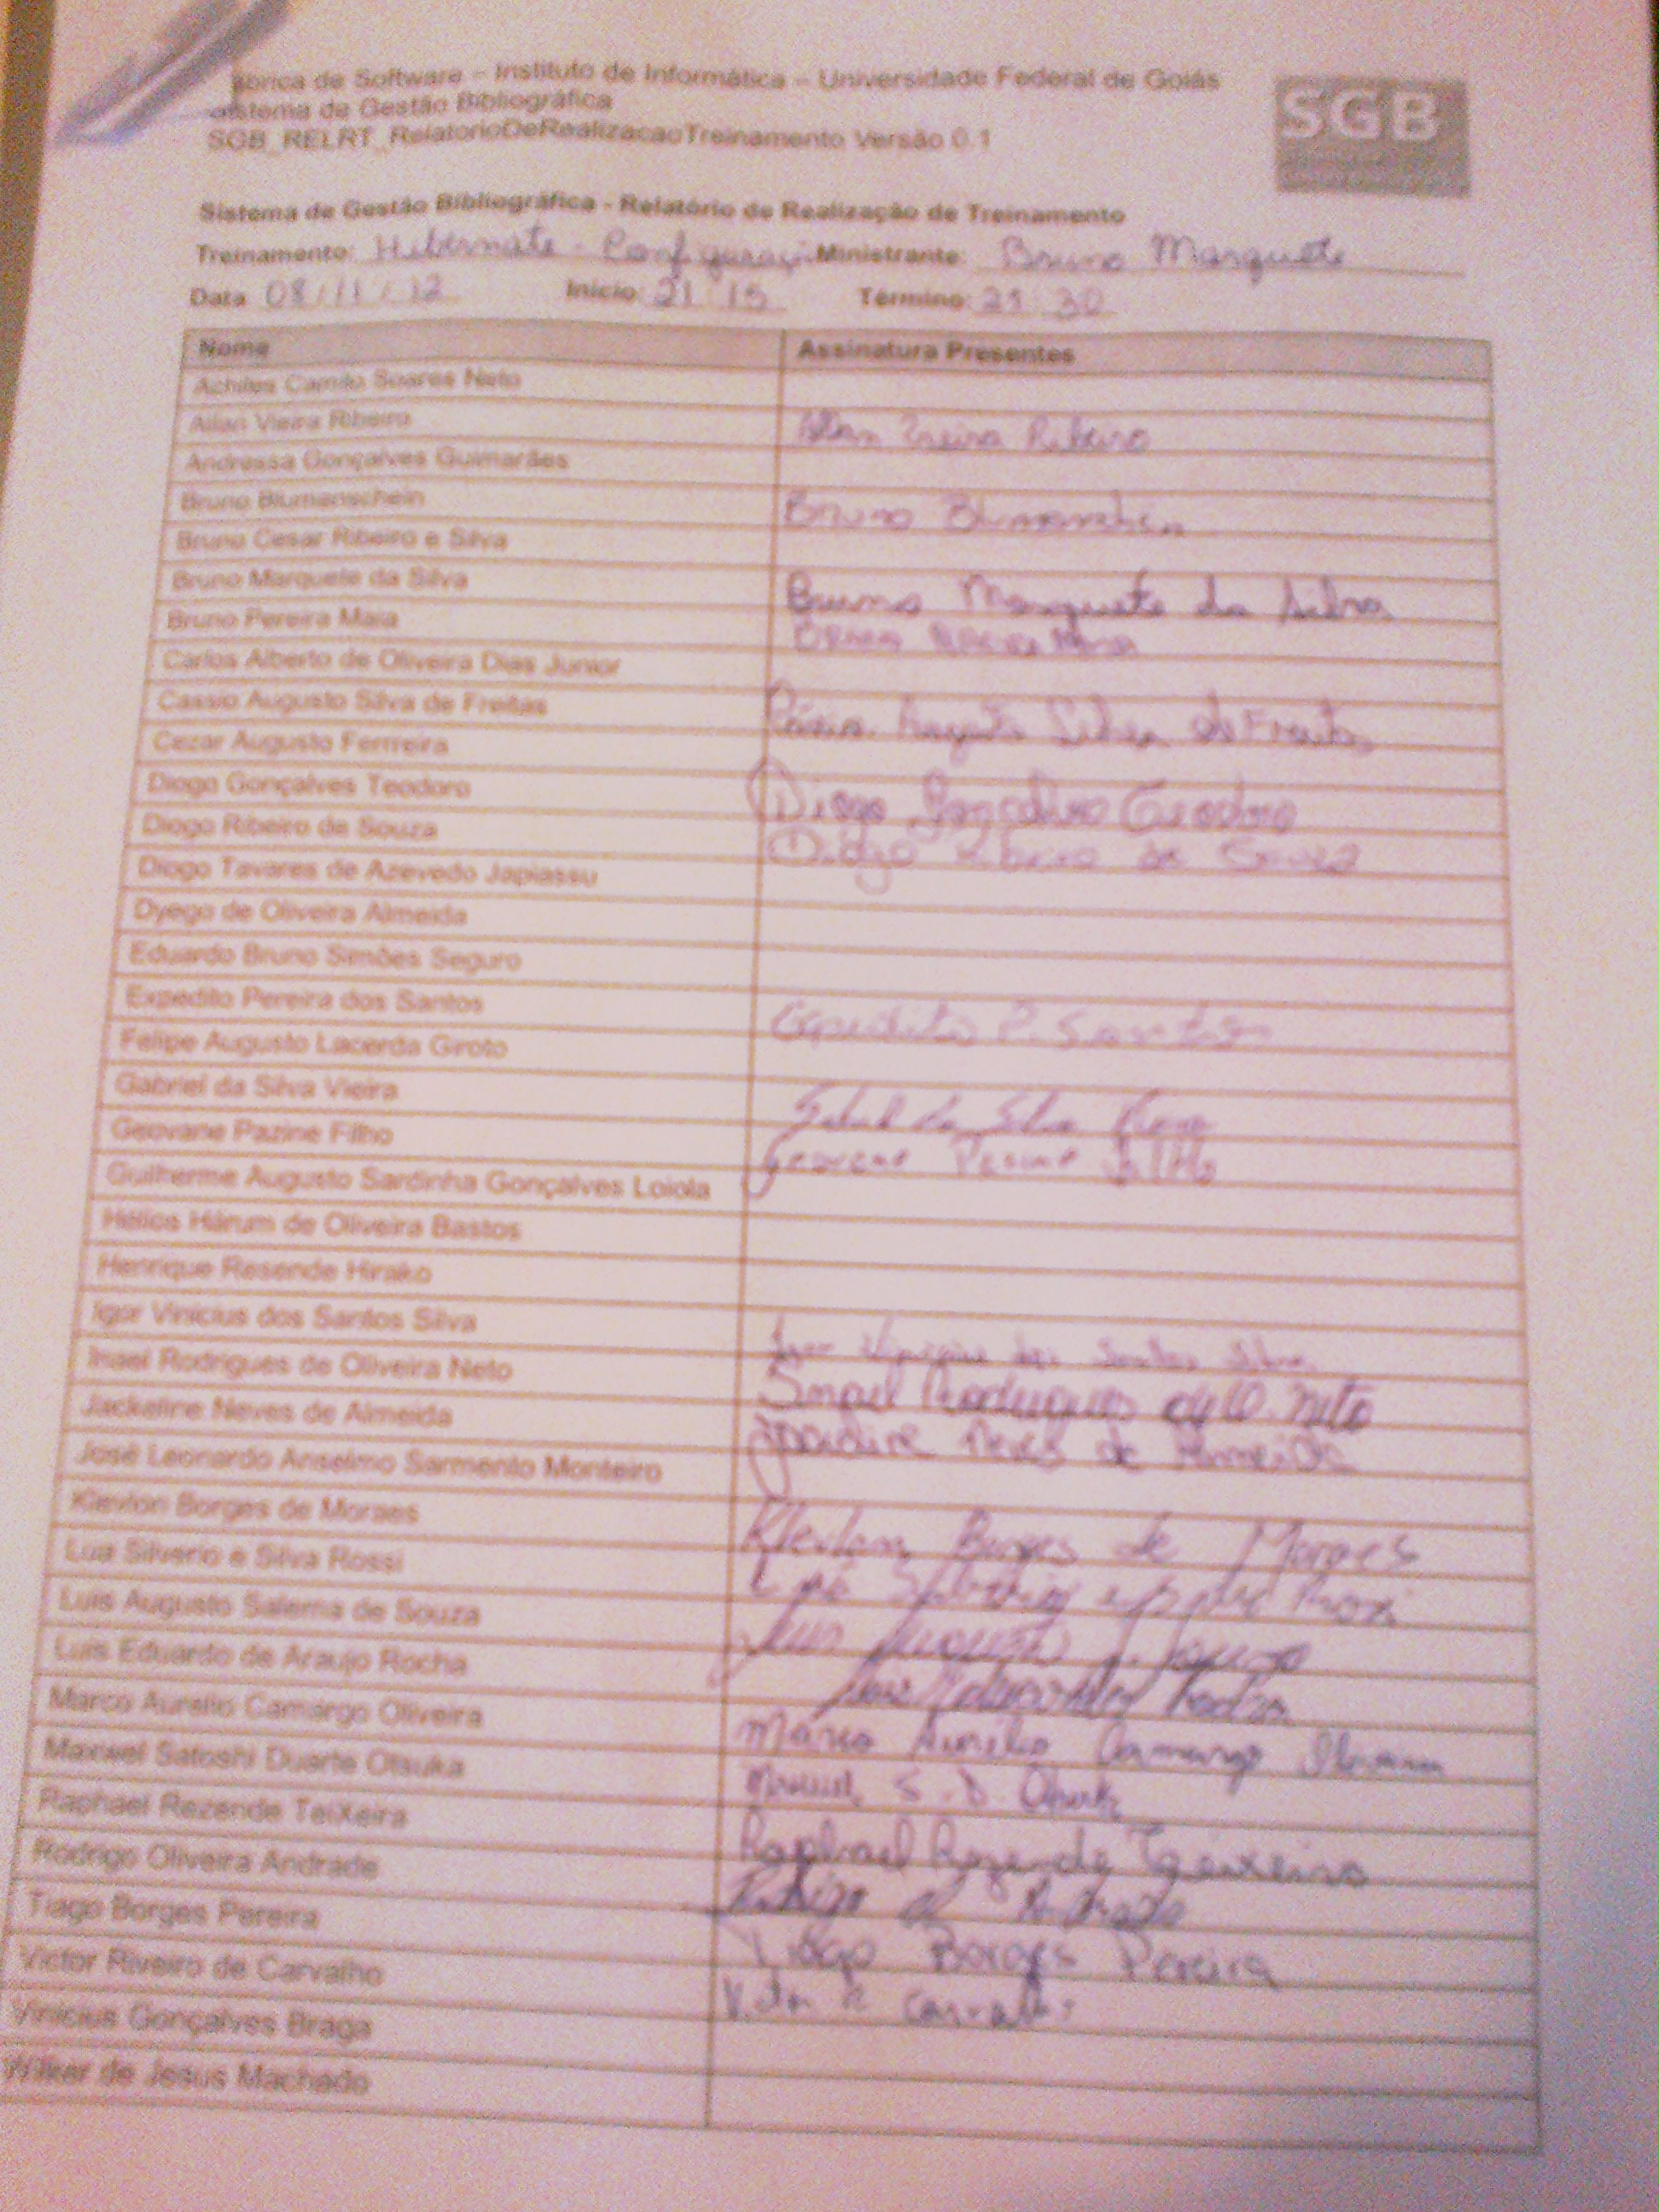 ábrica de Software – Instituto de Informática – Universidade Federal de Goiás
istema de Gestão Bibliográfica
SGB_RELRT_RelatorioDeRealizacaoTreinamento Versão 0.1
SGB
Sistema de Gestão Bibliográfica - Relatório de Realização de Treinamento
Treinamento: Hibernate - Configuraçã Ministrante: Bruno Marquete
Data 08/11/12 Início: 21 15 Término: 21 30
Nome Assinatura Presentes
Achiles Camilo Soares Neto
Allan Vieira Ribeiro Allan Vieira Ribeiro
Andressa Gonçalves Guimarães
Bruno Blumanschein Bruno Blumanschein
Bruno Cesar Ribeiro e Silva
Bruno Marquete da Silva Bruno Marquete da Silva
Bruno Pereira Maia Bruno Pereira Maia
Carlos Alberto de Oliveira Dias Junior
Cassio Augusto Silva de Freitas Cássio Augusto Silva de Freitas
Cezar Augusto Ferrreira
Diogo Gonçalves Teodoro Diogo Gonçalves Teodoro
Diogo Ribeiro de Souza Diogo Ribeiro de Souza
Diogo Tavares de Azevedo Japiassu
Dyego de Oliveira Almeida
Eduardo Bruno Simões Seguro
Expedito Pereira dos Santos Expedito P. Santos
Felipe Augusto Lacerda Giroto
Gabriel da Silva Vieira Gabriel da Silva Vieira
Geovane Pazine Filho Geovane Pazine Filho
Guilherme Augusto Sardinha Gonçalves Loiola
Hélios Hárum de Oliveira Bastos
Henrique Resende Hirako
Igor Vinicius dos Santos Silva Igor Vinicius dos Santos Silva
Insel Rodrigues de Oliveira Neto Rodrigues de O. Neto
Jackeline Neves de Almeida Jackeline Neves de Almeida
José Leonardo Anselmo Sarmento Monteiro
Klevlon Borges de Moraes Klevlon Borges de Moraes
Lua Silverio e Silva Rossi Lua Silverio e Silva Rossi
Luis Augusto Salerna de Souza Luis Augusto S. Souza
Luis Eduardo de Araujo Rocha Luis Eduardo Rocha
Marco Aurelio Camargo Oliveira Marco Aurélio Camargo Oliveira
Maxwel Satoshi Duarte Otsuka Maxwel S. D. Otsuka
Raphael Rezende TeiXeira Raphael Rezende Teixeira
Rodrigo Oliveira Andrade Rodrigo Andrade
Tiago Borges Pereira Tiago Borges Pereira
Victor Riveiro de Carvalho Victor R Carvalho
Vinicius Gonçalves Braga
Wilker de Jesus Machado